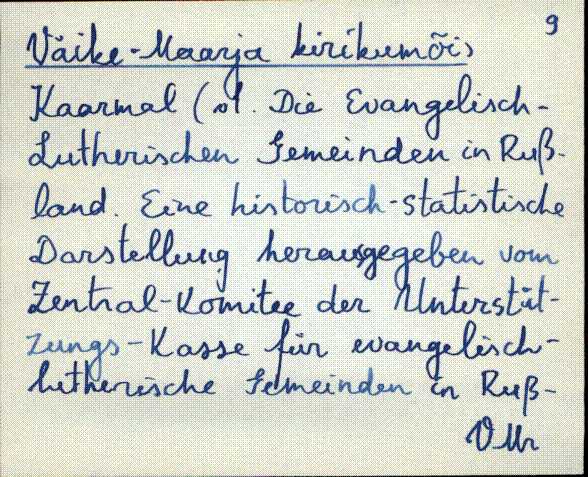 9
Väike-Maarja kirikumõis
Kaarmal (vt. Die Evangelisch-
Lutherischen Gemeinden in Ruß-
land. Eine historisch-statistische
Darstellung herausgegeben vom
Zentral-Komitee der Unterstüt-
zungs-Kasse für evangelisch-
lutherische Gemeinden in Ruß-